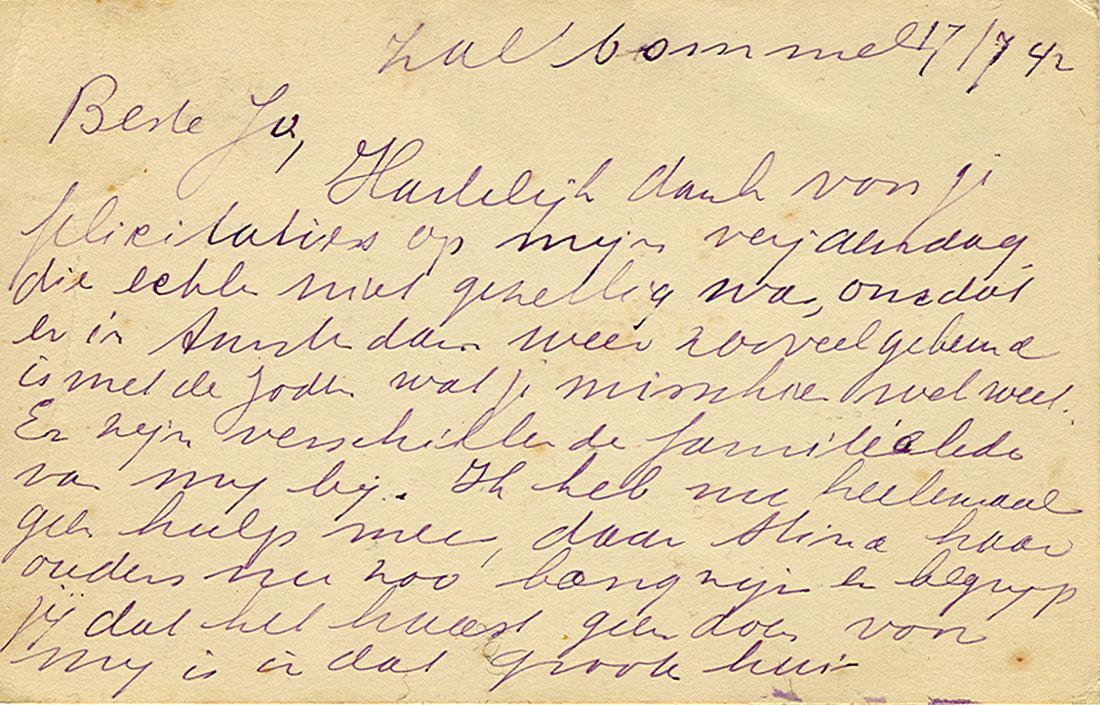 Zalt bommel 17/7 42
Beste Jo,
Hartelijk dank voor je
felicitaties op mijn verjaardag,
die echter niet gezellig was, omdat
er in Amsterdam weer zooveel gebeurd
is met de Joden wat je misschien wel weet.
Er zijn verschillende familieleden
van mij bij. Ik heb nu heelemaal
geen hulp meer, daar Stina haar
ouders nu zoo bang zijn en begrijp
jij dat het haast geen doen voor
mij is in dat groote huis